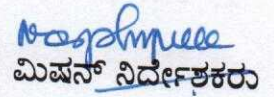 ಮಿಷನ್ ನಿರ್ದೇಶಕರು